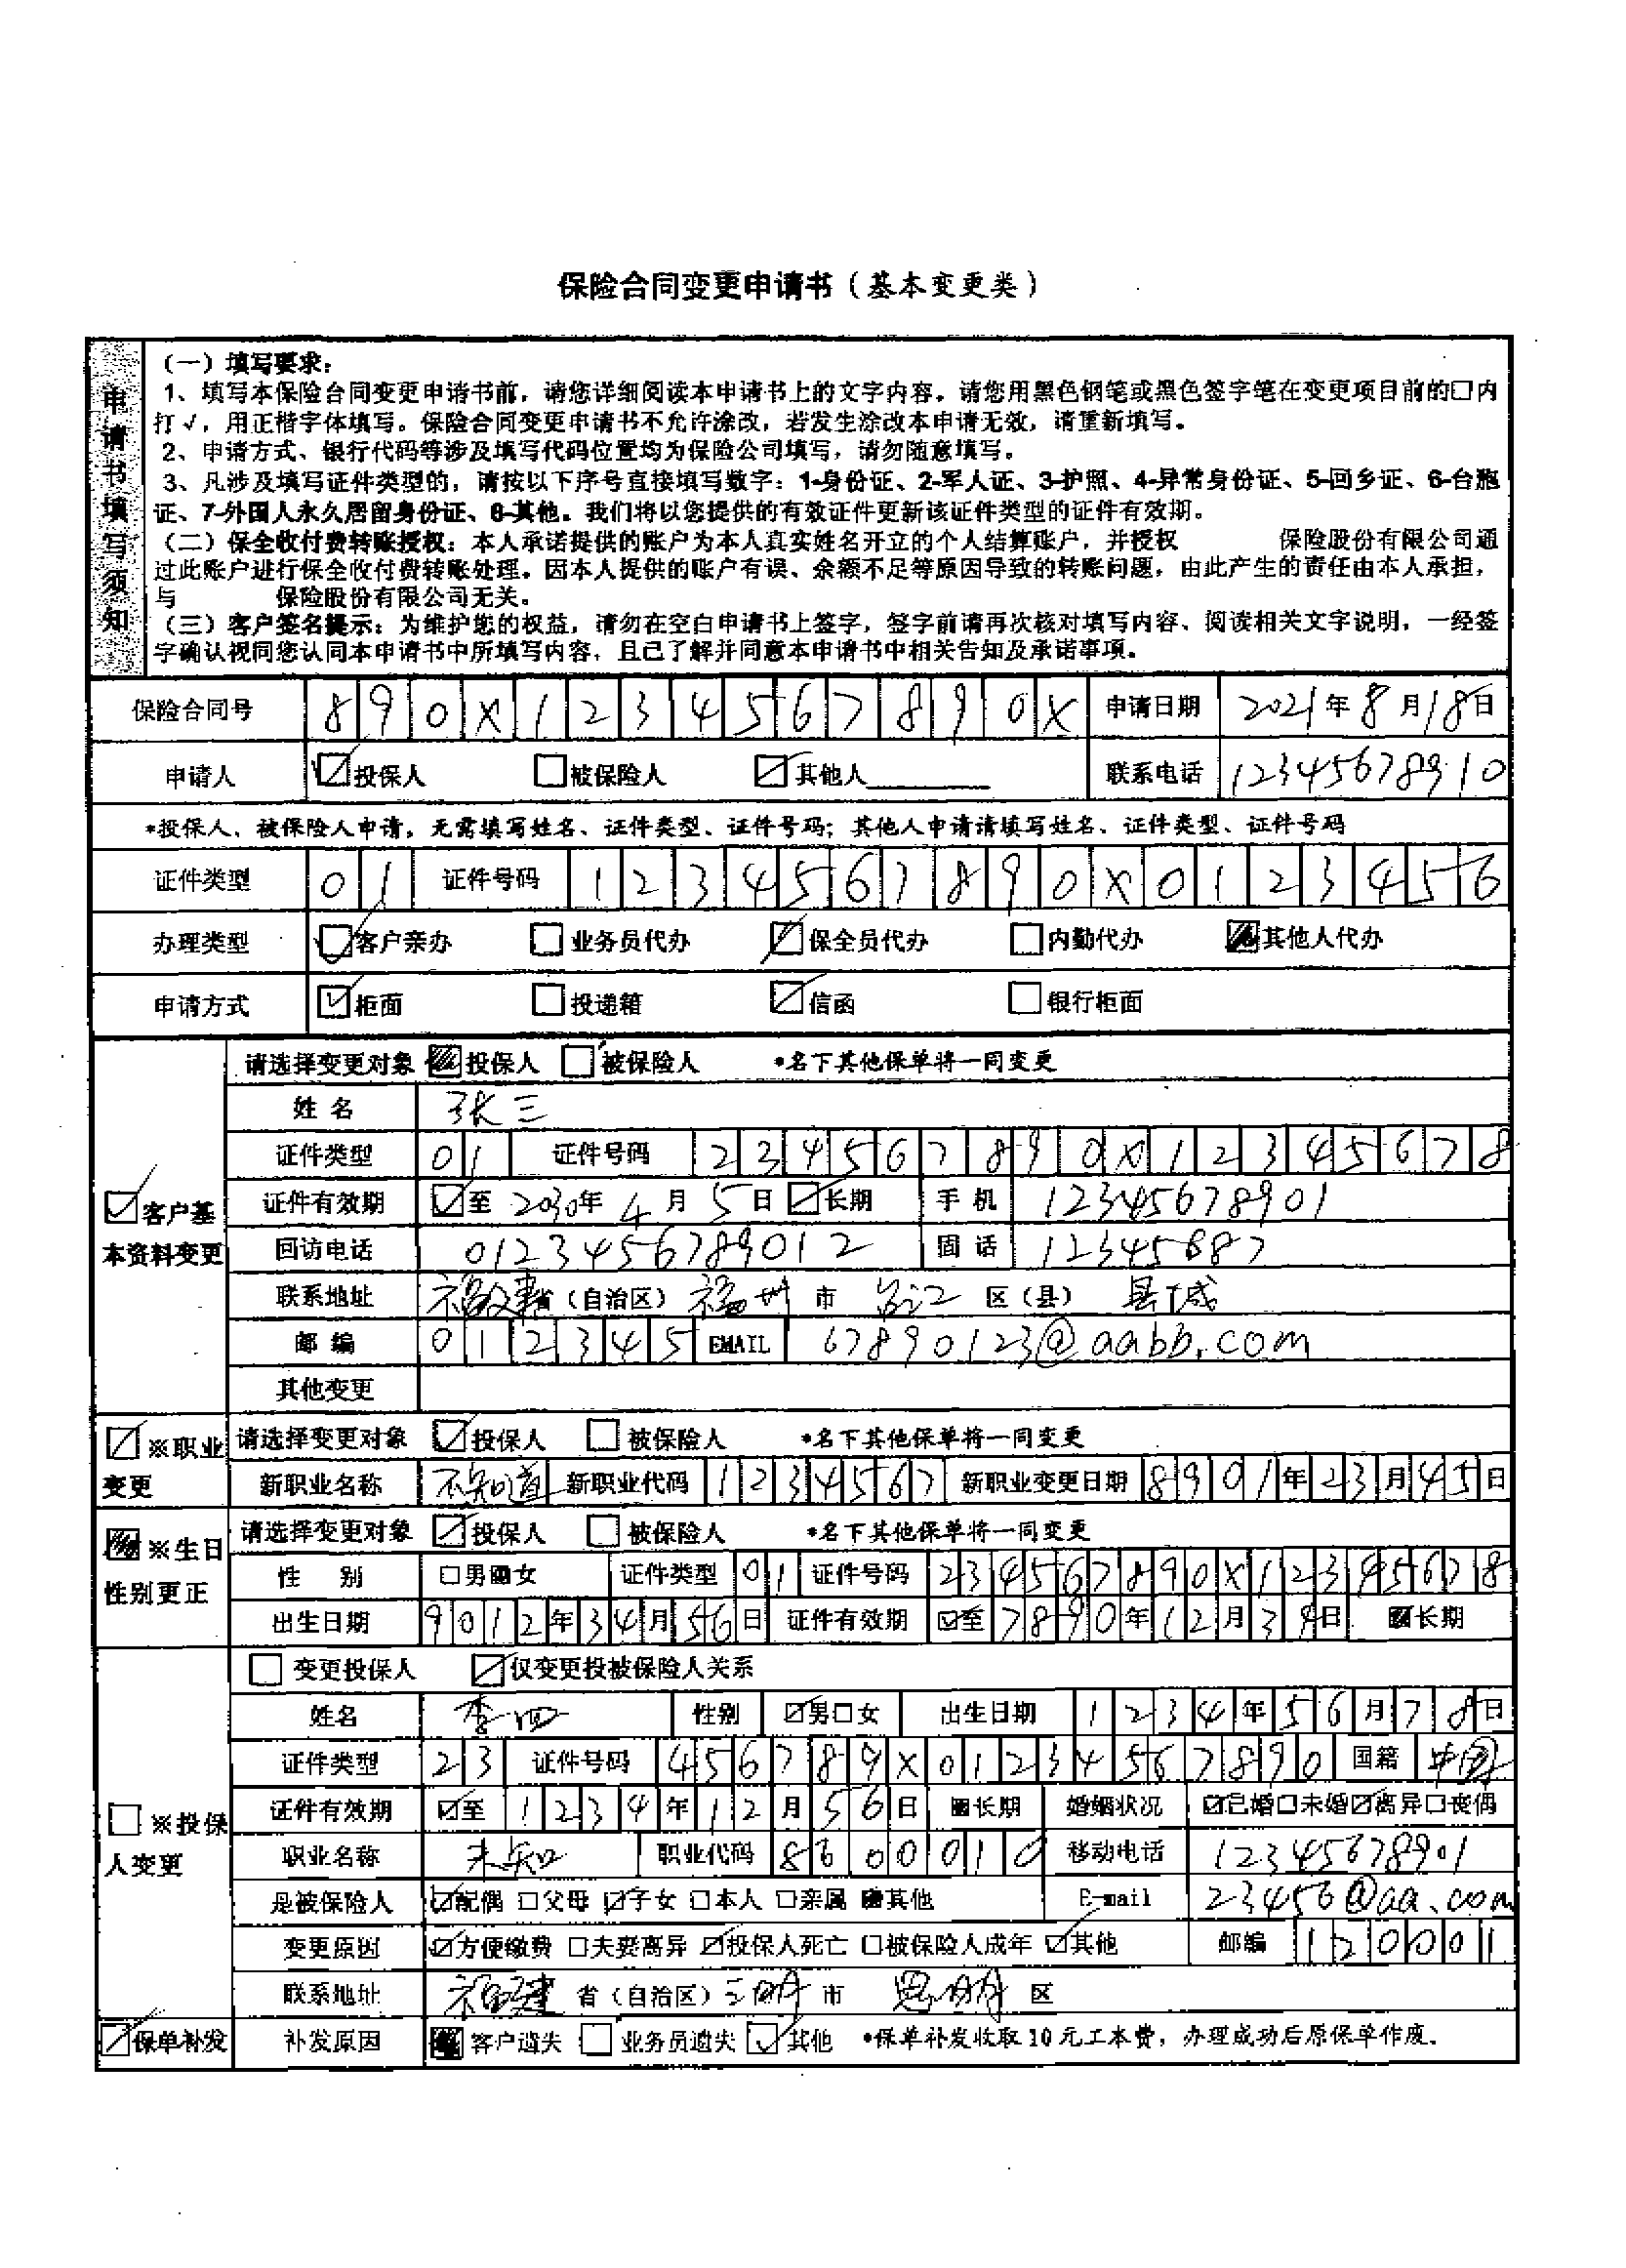 保险合同变更申请书（基本变更类）
申请书填写须知
（一）填写要求：
1、填写本保险合同变更申请书前，请您详细阅读本申请书上的文字内容。请您用黑色钢笔或黑色签字笔在变更项目前的□内
打√，用正楷字体填写。保险合同变更申请书不允许涂改，若发生涂改本申请无效，请重新填写。
2、申请方式、银行代码等涉及填写代码位置均为保险公司填写，请勿随意填写。
3、凡涉及填写证件类型的，请按以下序号直接填写数字：1-身份证、2-军人证、3-护照、4-异常身份证、5-回乡证、6-台胞
证、7-外国人永久居留身份证、8-其他。我们将以您提供的有效证件更新该证件类型的证件有效期。
（二）保全收付费转账授权：本人承诺提供的账户为本人真实姓名开立的个人结算账户，并授权 保险股份有限公司通
过此账户进行保全收付费转账处理。因本人提供的账户有误、余额不足等原因导致的转账问题，由此产生的责任由本人承担，
与 保险股份有限公司无关。
（三）客户签名提示：为维护您的权益，请勿在空白申请书上签字，签字前请再次核对填写内容、阅读相关文字说明，一经签
字确认视同您认同本申请书中所填写内容，且已了解并同意本申请书中相关告知及承诺事项。
保险合同号 890X1234567890X 申请日期 2021年8月18日
申请人 ☑投保人 □被保险人 ☑其他人 联系电话 12345678910
*投保人、被保险人申请，无需填写姓名、证件类型、证件号码；其他人申请请填写姓名、证件类型、证件号码
证件类型 01 证件号码 1234567890X0123456
办理类型 ☑客户亲办 □业务员代办 ☑保全员代办 □内勤代办 ■其他人代办
申请方式 ☑柜面 □投递箱 ☑信函 □银行柜面
☑客户基本资料变更
请选择变更对象 ■投保人 □被保险人 *名下其他保单将一同变更
姓名 张三
证件类型 01 证件号码 234567890X12345678
证件有效期 ☑至 2030年4月5日 ☑长期 手机 12345678901
回访电话 0123456789012 固话 12345687
联系地址 福建省（自治区） 福州 市 台江 区（县） 县城
邮编 012345 EMAIL 67890123@aabb.com
其他变更
☑※职业变更
请选择变更对象 ☑投保人 □被保险人 *名下其他保单将一同变更
新职业名称 不知道 新职业代码 1234567 新职业变更日期 8901年23月45日
■※生日性别更正
请选择变更对象 ☑投保人 □被保险人 *名下其他保单将一同变更
性别 □男■女 证件类型 01 证件号码 234567890X12345678
出生日期 9012年34月56日 证件有效期 ☑至 7890年12月39日 ■长期
□※投保人变更
□变更投保人 ☑仅变更投被保险人关系
姓名 李四 性别 ☑男□女 出生日期 1234年56月78日
证件类型 23 证件号码 456789X01234567890 国籍 中国
证件有效期 ☑至 1234年12月56日 ■长期 婚姻状况 ☑已婚□未婚☑离异□丧偶
职业名称 未知 职业代码 8600010 移动电话 12345678901
是被保险人 ☑配偶 □父母 ☑子女 □本人 □亲属 ■其他 E-mail 23456@aa.com
变更原因 ☑方便缴费 □夫妻离异 ☑投保人死亡 □被保险人成年 ☑其他 邮编 120001
联系地址 福建 省（自治区） 三明 市 思明 区
☑保单补发 补发原因 ■客户遗失 □业务员遗失 ☑其他 *保单补发收取10元工本费，办理成功后原保单作废。